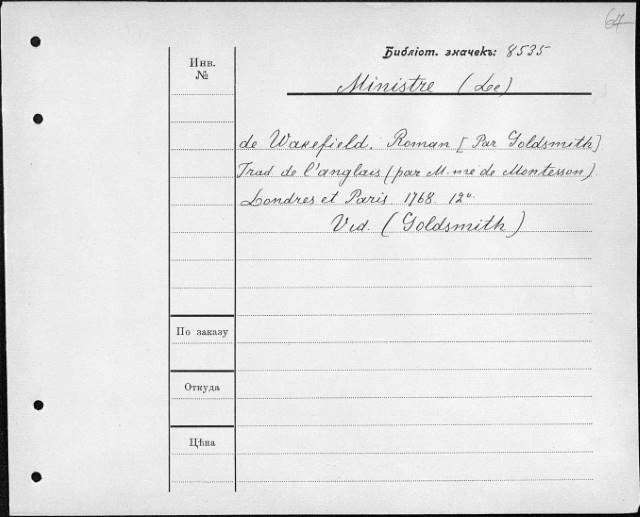 67
Библіот. значекъ: 8535
Инв.
№
Ministre (Le)
de Wakefield. Roman [Par Goldsmith]
Trad. de l'anglais (par M-me de Montesson).
Londres et Paris. 1768. 12º.
Vid. (Goldsmith)
По заказу
Откуда
Цѣна